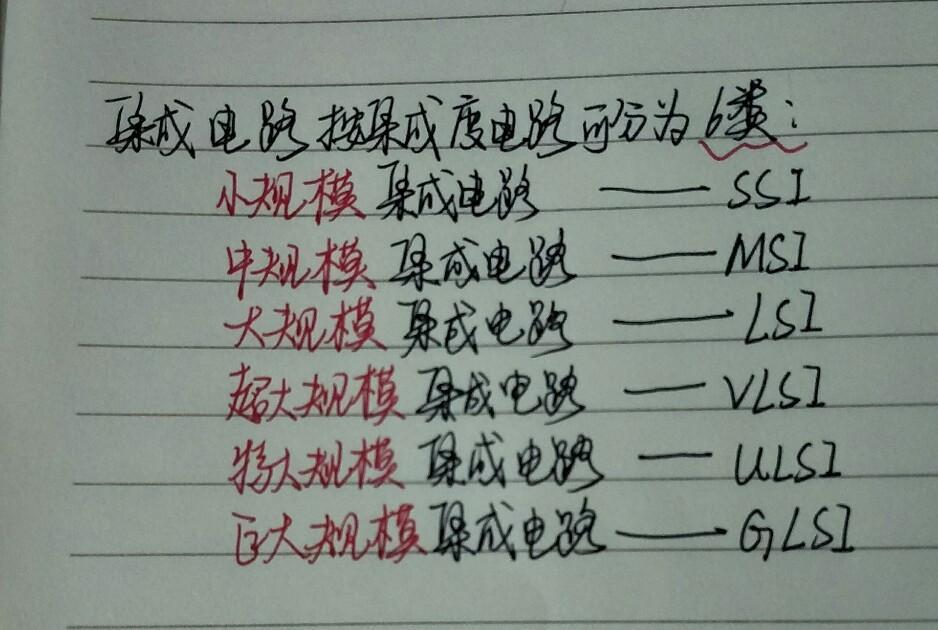 集成电路按集成度电路可分为6类:
小规模集成电路 —— SSI
中规模集成电路 —— MSI
大规模集成电路 —— LSI
超大规模集成电路 —— VLSI
特大规模集成电路 —— ULSI
巨大规模集成电路 —— GLSI